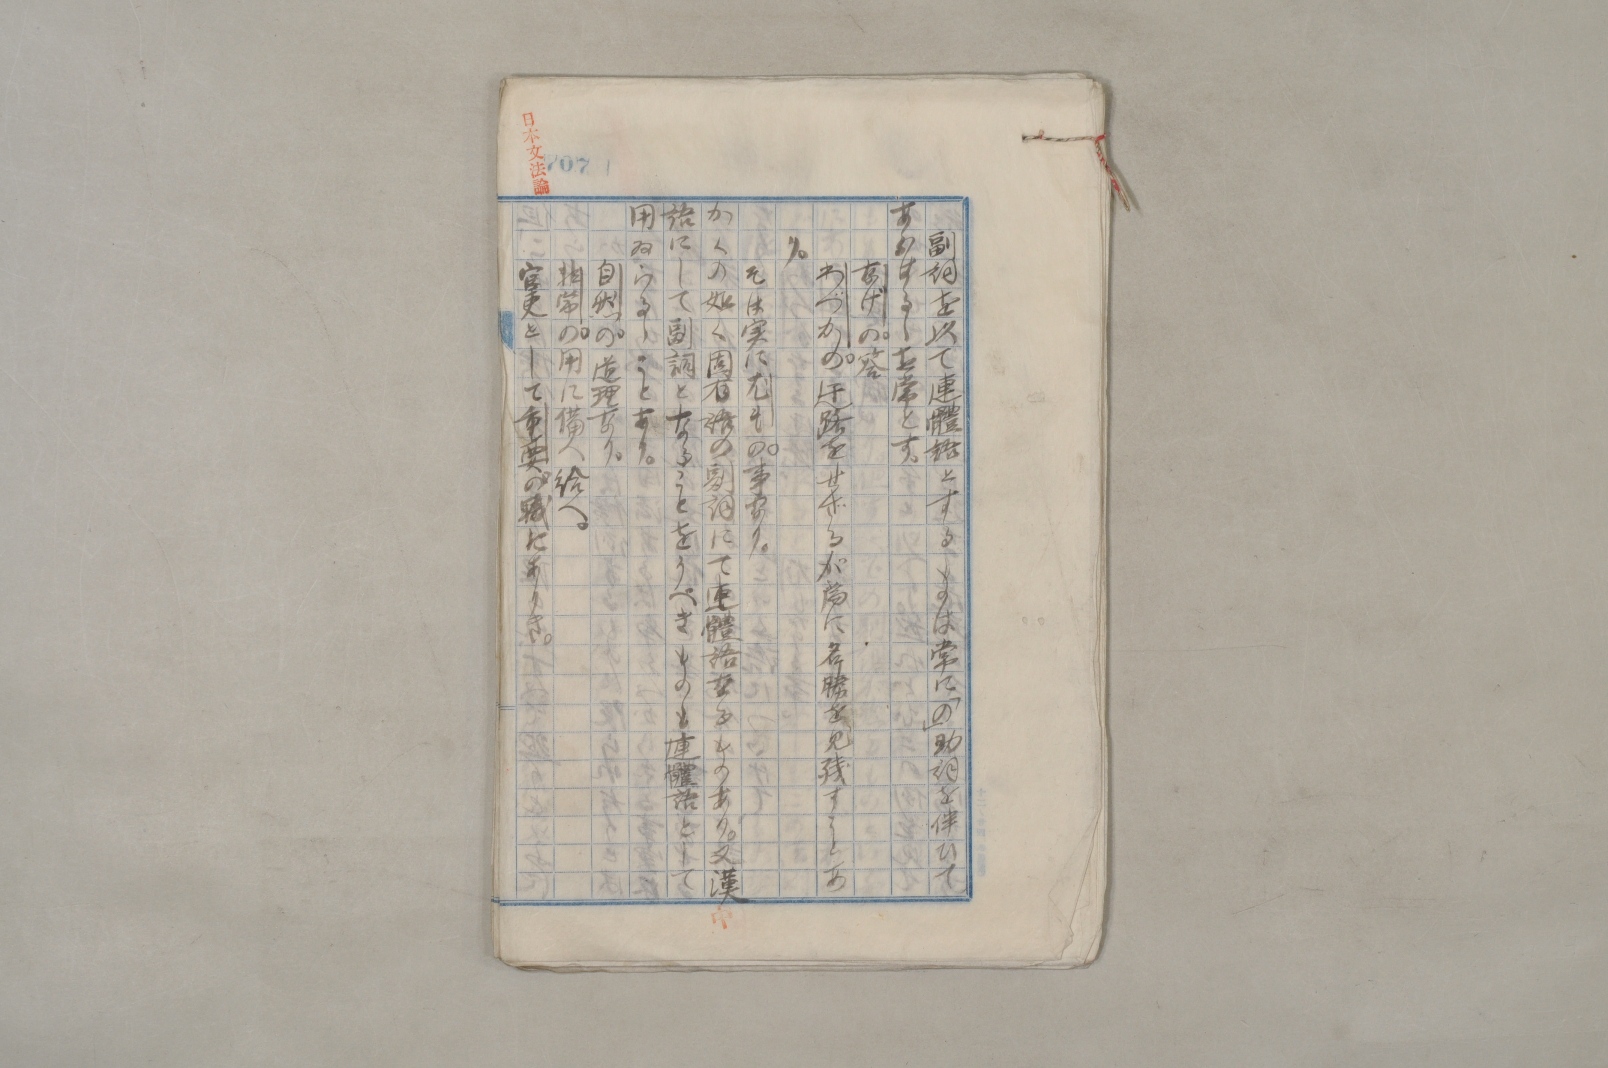 日本文法論
707
副詞を以て連體語とするものは常に「の」助詞を伴ひて
あらはるゝを常とす。
なげの答
わづかの迂路をせざるが為に名勝を見残すことあ
り。
そは実に尤もの事なり。
かくの如く固有語の副詞にて連體語なるものあり。又漢
語にして副詞となることをうべきものも連體語として
用ゐらるゝことあり。
自然の道理なり。
相当の用に備へ給へ。
官吏として重要の職にありき。
中